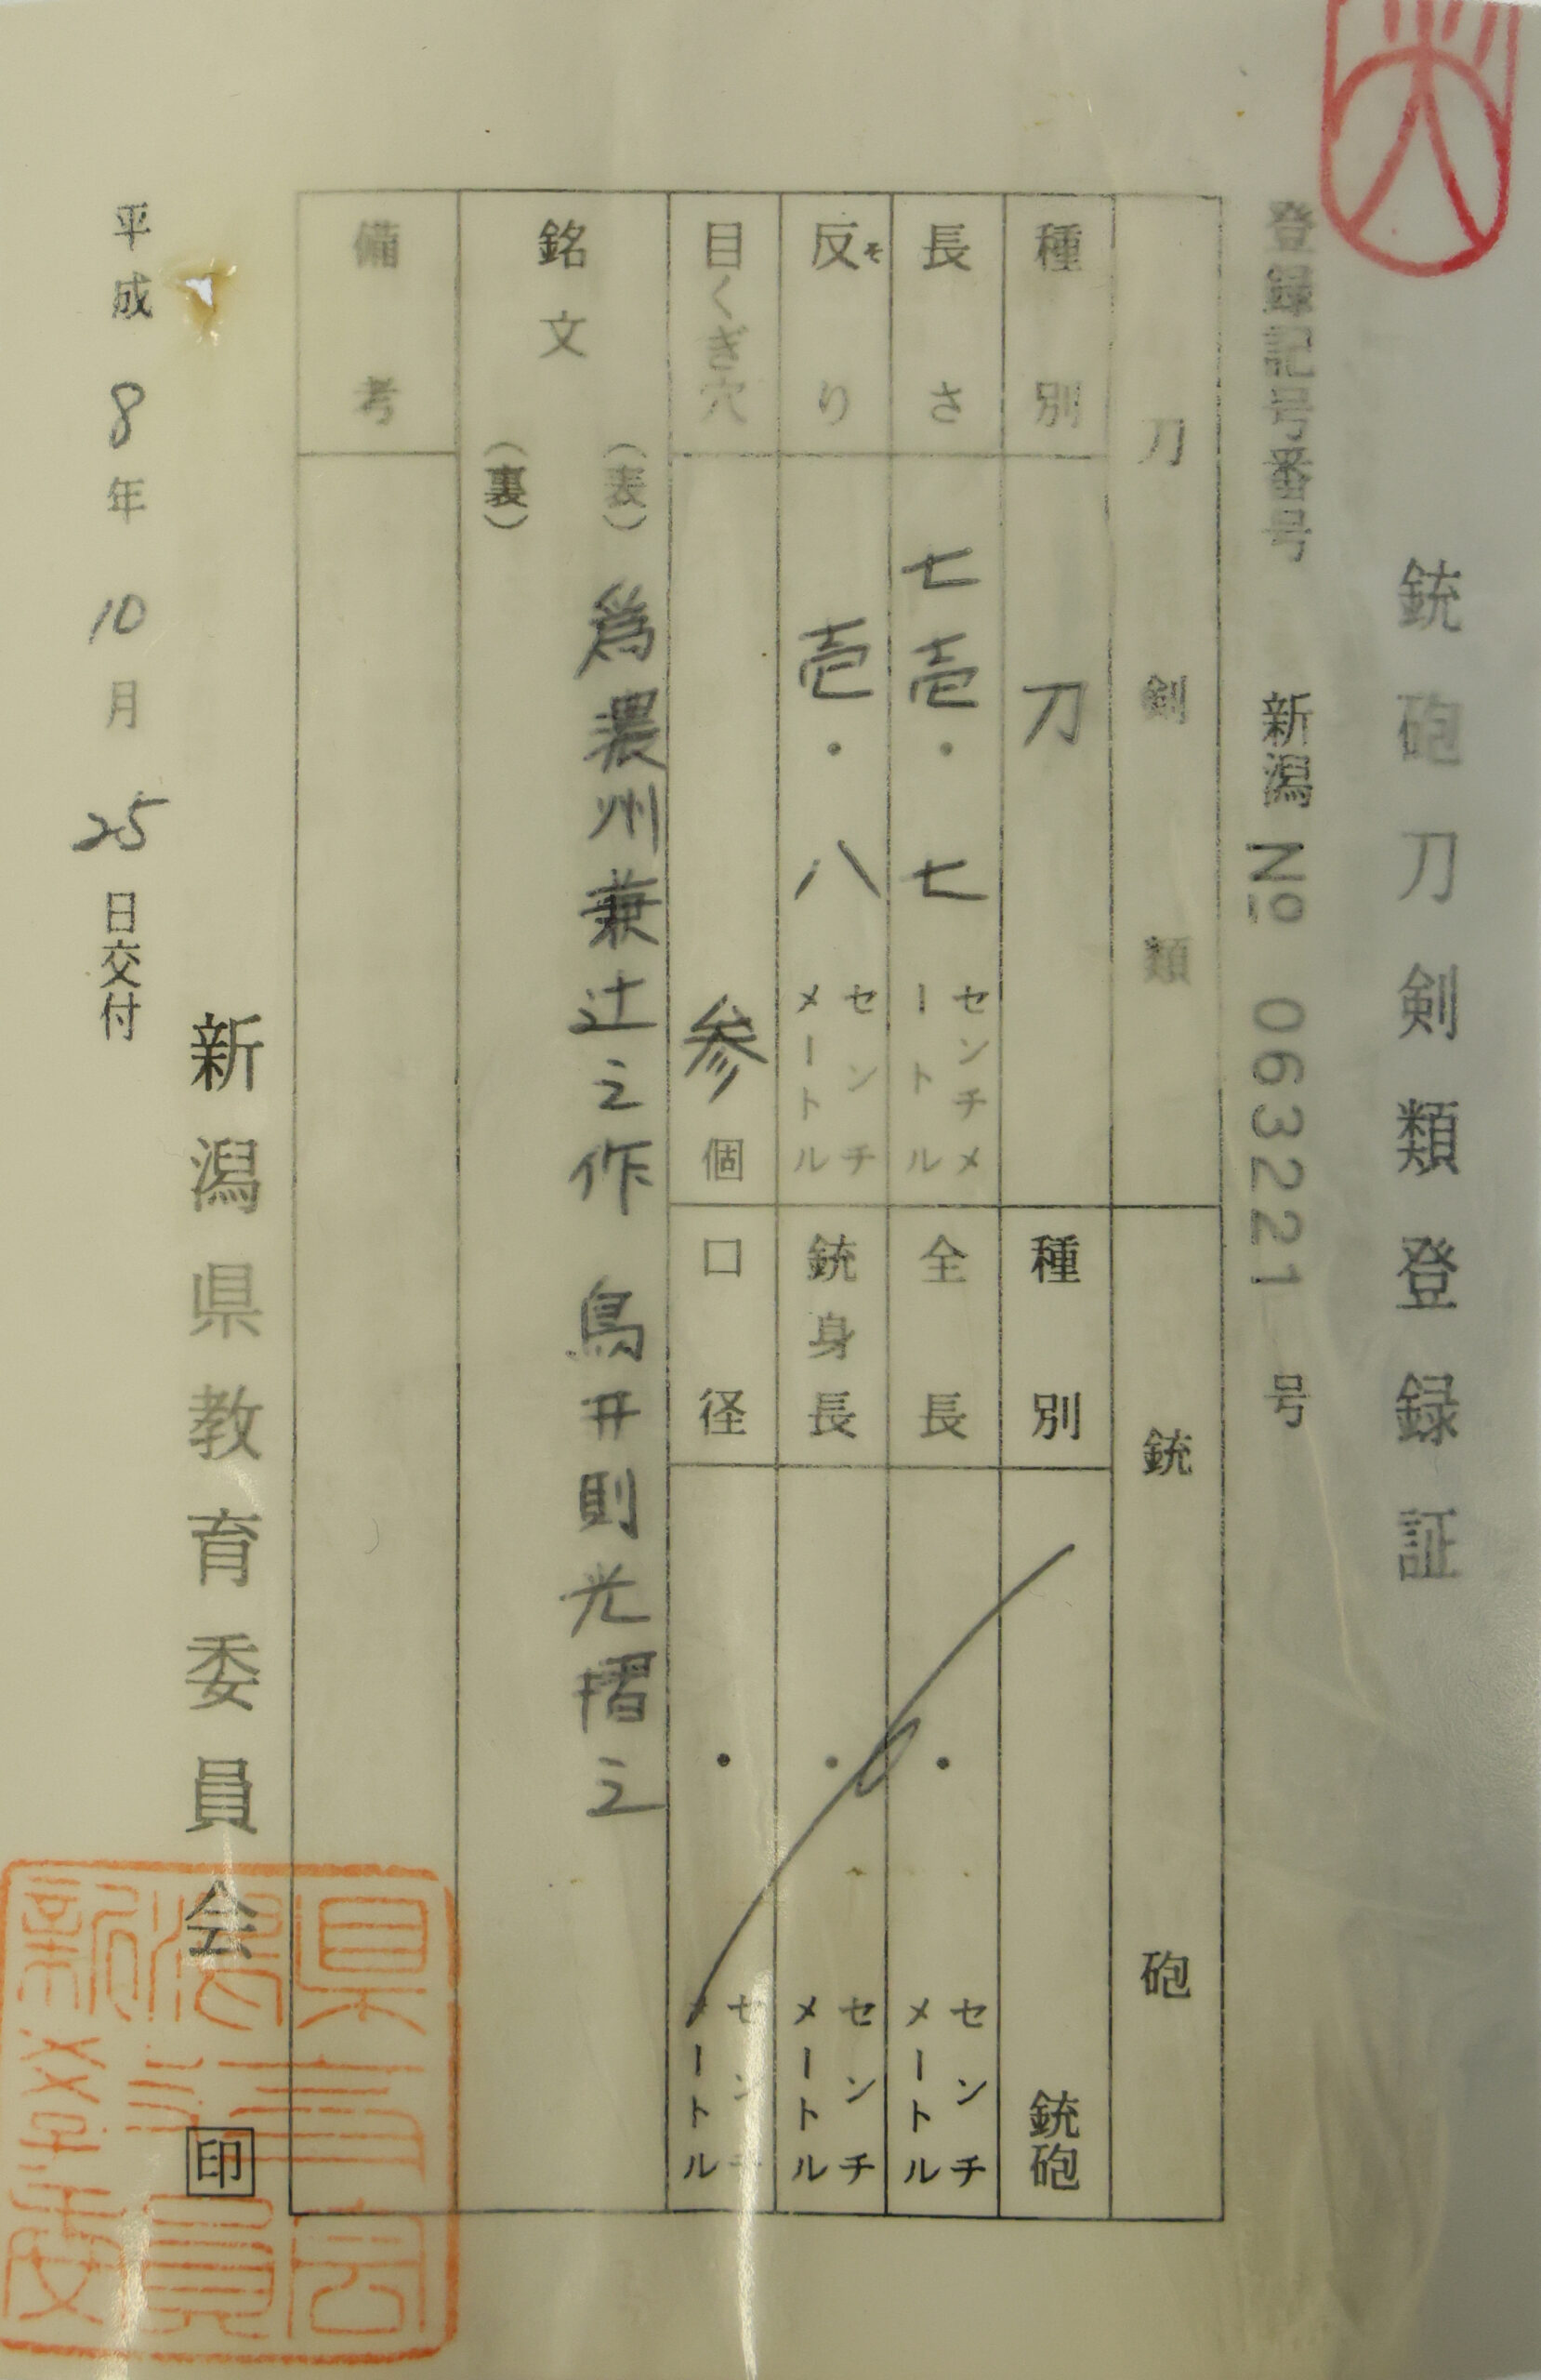 銃砲刀剣類登録証
登録記号番号 新潟 № 063221 号
刀剣類
種別 刀
長さ 七壱・七 センチメートル
反り 壱・八 センチメートル
そ
目くぎ穴 参個
銘文
(表) 為濃州兼辻之作 鳥井則光摺之
(裏)
備考
銃砲
種別 銃砲
全長 ・ センチメートル
銃身長 ・ センチメートル
口径 ・ センチメートル
平成8年10月25日交付
新潟県教育委員会 印